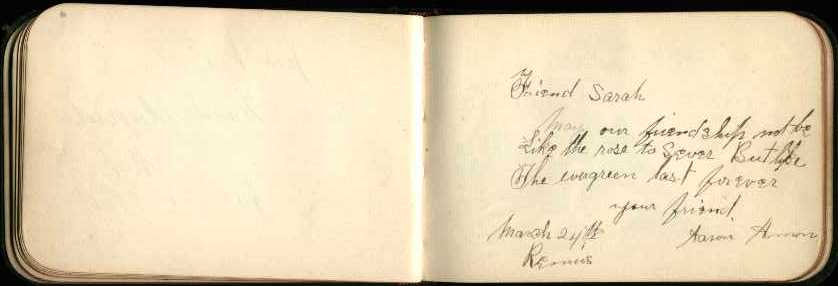 Friend Sarah
May our friendship not be
Like the rose to Sever But like
The evergreen last forever
your friend
March 24th Aaron
Remus